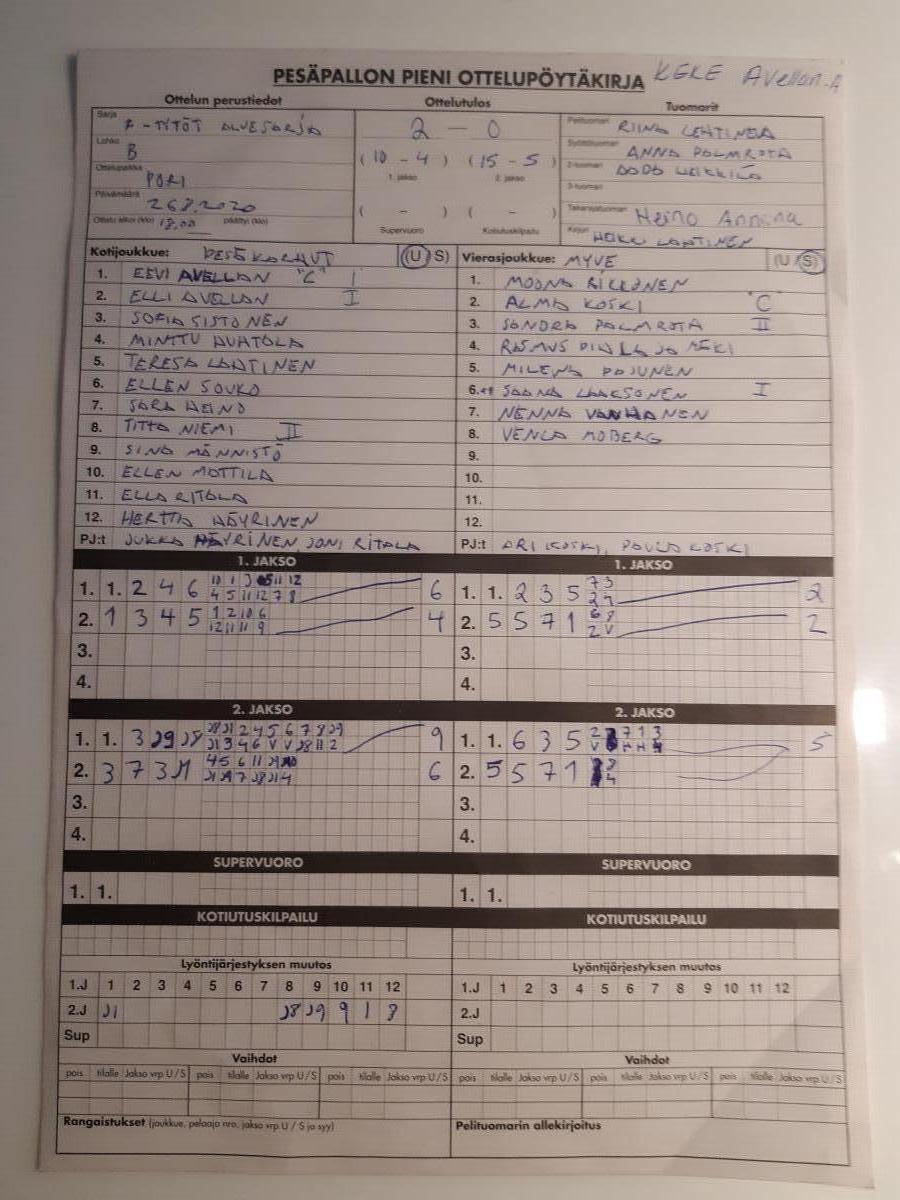 PESÄPALLON PIENI OTTELUPÖYTÄKIRJA
Ottelun perustiedot
Sarja F-TYTÖT ALUESARJA
Lohko B
Ottelupaikka PORI
Päivämäärä 26.8.2020
Ottelu alkoi (klo) 18.00 päättyi (klo)
Ottelutulos
2 - 0
(10 - 4) (15 - 5)
1. jakso 2. jakso
( - ) ( - )
Supervuoro Kotiutuskilpailu
Tuomarit
Pelituomari RIINA LEHTINEN
Syöttötuomari ANNA PALMROTA
2-tuomari
3-tuomari
Takarajatuomari Heino Annina
Kirjuri HEIKKI LAHTINEN
Kotijoukkue: PESÄKARHUT (U S)
1. EEVI AVELLAN "C" I
2. ELLI AVELLAN I
3. SOFIA SISTONEN
4. MINTTU HUHTALA
5. TERESA LAHTINEN
6. ELLEN SOUKO
7. SARA HEINO
8. TITTA NIEMI II
9. SINA MÄNNISTÖ
10. ELLEN MATTILA
11. ELLA RITALA
12. HERTTA HÄYRINEN
PJ:t JUKKA HÄYRINEN, JONI RITALA
Vierasjoukkue: MYVE (U S)
1. MOONA RIKKONEN
2. ALMA KOSKI "C"
3. SANDRA PALMROTA II
4. RASMUS
5. MILENA PAJUNEN
6. SAANA LAAKSONEN I
7. NENNA VANHANEN
8. VENLA MOBERG
9.
10.
11.
12.
PJ:t ARI KOSKI, PAULA KOSKI
1. JAKSO
1. 1. 2 4 6 6
2. 1 3 4 5 1 2 10 6 4
12 11 11 9
3.
4.
1. JAKSO
1. 1. 2 3 5 7 3 2
2. 5 5 7 1 6 8 2
2 V
3.
4.
2. JAKSO
1. 1. 3 J9 J8 J8 J1 2 4 5 6 7 8 J9 9
J1 3 4 6 V V J8 11 2
2. 3 7 3 J1 6
3.
4.
2. JAKSO
1. 1. 6 3 5 5
2. 5 5 7 1
3.
4.
SUPERVUORO
1. 1.
SUPERVUORO
1. 1.
KOTIUTUSKILPAILU
KOTIUTUSKILPAILU
Lyöntijärjestyksen muutos
1.J 1 2 3 4 5 6 7 8 9 10 11 12
2.J J1 J8 J9 9 1 8
Sup
Lyöntijärjestyksen muutos
1.J 1 2 3 4 5 6 7 8 9 10 11 12
2.J
Sup
Vaihdot
pois tilalle Jakso vrp U/S pois tilalle Jakso vrp U/S pois tilalle Jakso vrp U/S
Vaihdot
pois tilalle Jakso vrp U/S pois tilalle Jakso vrp U/S pois tilalle Jakso vrp U/S
Rangaistukset (joukkue, pelaaja nro, jakso vrp U / S ja syy)
Pelituomarin allekirjoitus